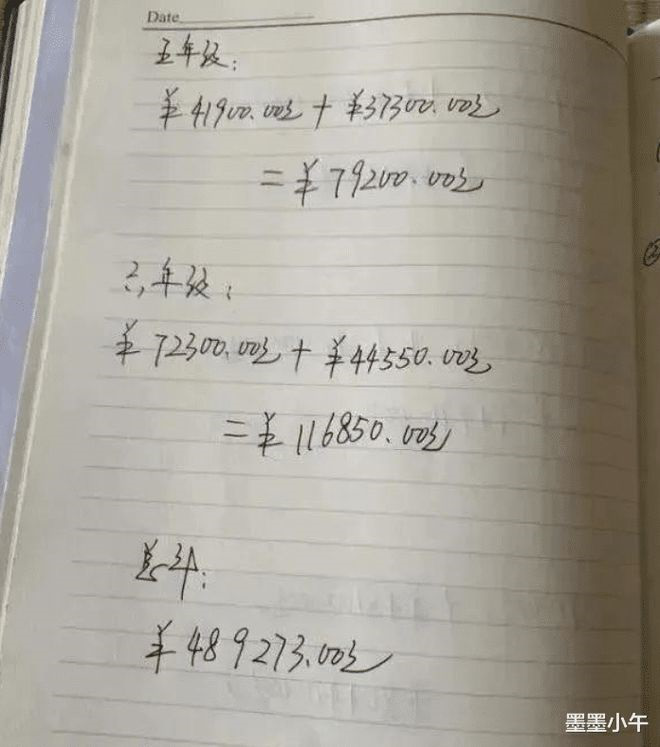 Date
五年级:
¥41900.00元 + ¥37300.00元
=¥79200.00元
六年级:
¥72300.00元 + ¥44550.00元
=¥116850.00元
总计:
¥489273.00元
②
墨墨小午